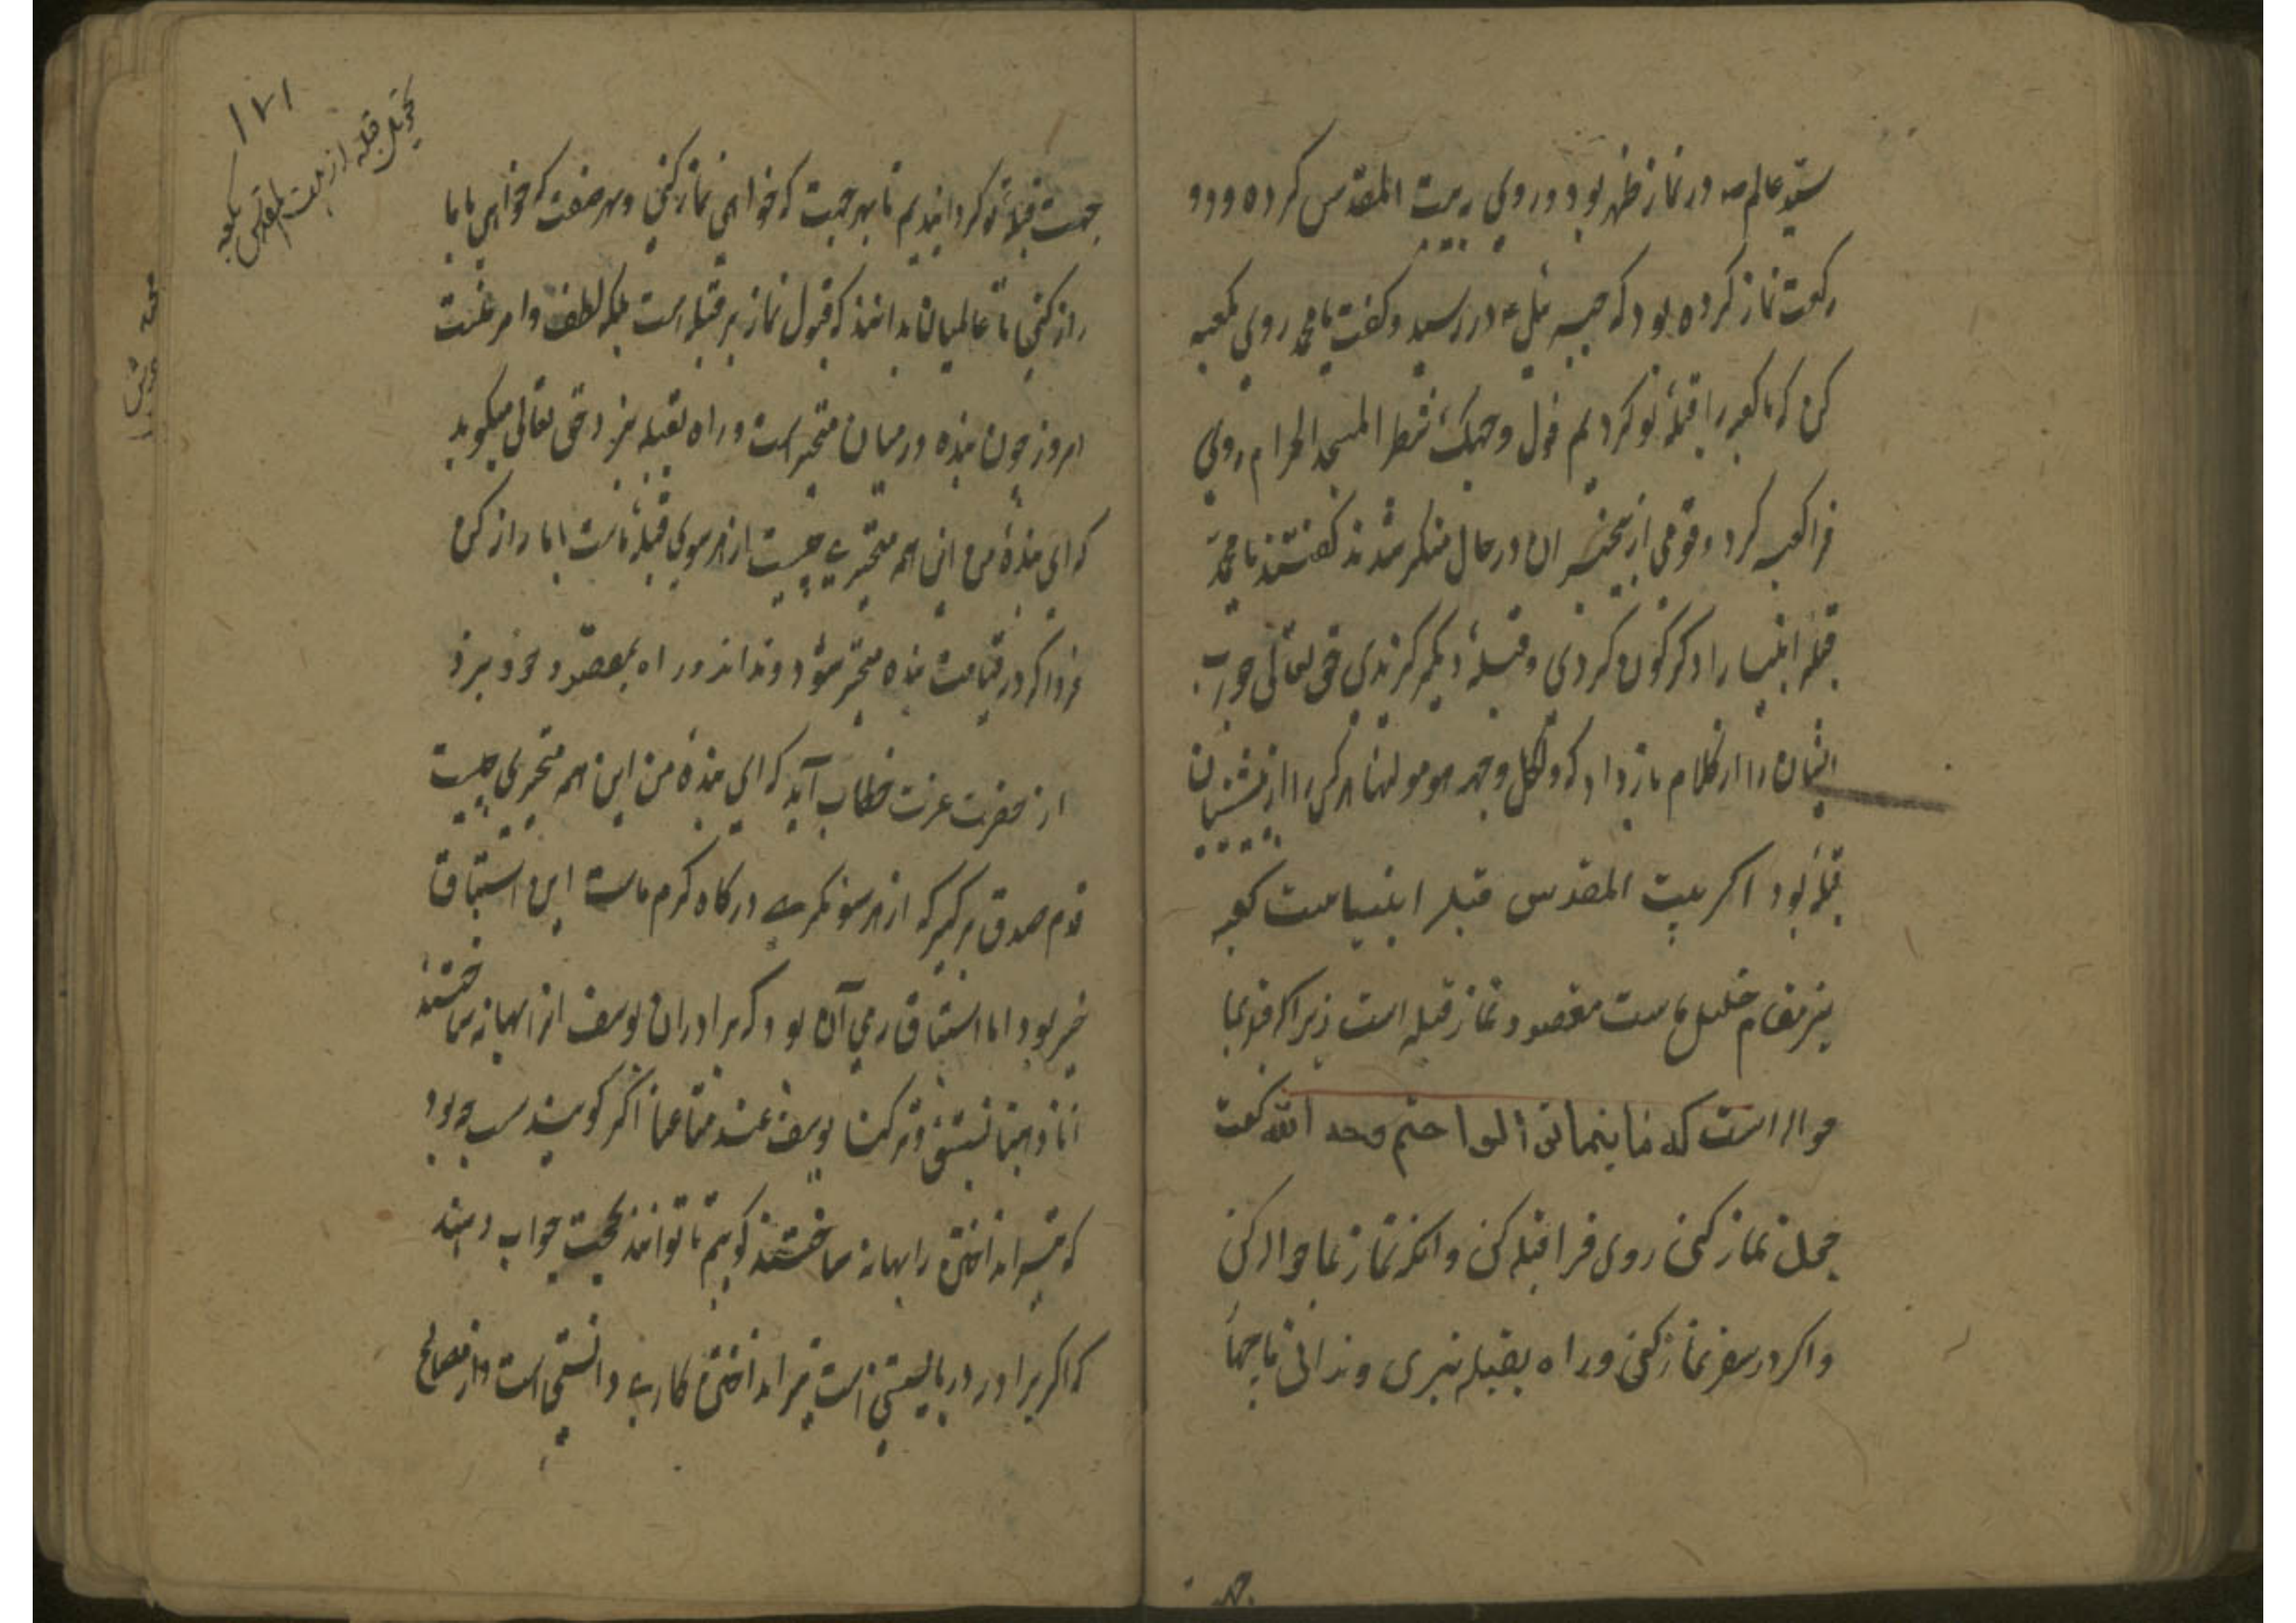 سید عالم صه در نماز ظهر بود و روی به بیت المقدس کرده و دو
رکعت نماز کرده بود که جبرئیل ع در رسید و کفت یا محمد روی بکعبه
کن که ما کعبه را قبلهٔ تو کردیم فول وجهک شطر المسجد الحرام روی
فرا کعبه کرد و قومی از بیخبران در حال منکر شدند کفتند یا محمد
قبلهٔ انبیا را دکرکون کردی و قبلهٔ دیکر کزیدی حق تعالی جواب
ایشان را از کلام باز داد که ولکل وجهه هو مولیها هر کس را از پیشینیان
قبلهٔ بود اکر بیت المقدس قبلهٔ انبیاست کعبه
نیز مقام خلیل ماست مقصود نماز قبله است زیرا که قبلهٔ ما
حواله است که فاینما تولوا فثم وجه الله کفت
چون نماز کنی روی فرا قبله کن و آنکه نماز بما حواله کن
و اکر در سفر نماز کنی و راه بقبله نبری و ندانی ما جمله
جهت
۱۷۱
تحویل قبله از بیت المقدس بکعبه
جهت قبلهٔ تو کردانیدیم تا بهر جهت که خواهی نماز کنی و بهر صفت که خواهی با ما
راز کنی تا عالمیان بدانند که قبول نماز بر قبله است بلکه لطف و امر
امروز چون بنده در میان متحیر است و راه بقبله نبرد حق تعالی میکوید
که ای بندهٔ من این همه متحیری چیست از هر سوی قبلهٔ ماست با ما راز کن
فردا که در قیامت بنده متحیر شود و نداند و راه بمقصود خود نبرد
از حضرت عزت خطاب آید که ای بندهٔ من این همه متحیری چیست
قدم صدق برکیر که از هر سو نکری درکاه کرم ماست این استباق
خیر بود اما استباق رمی آن بود که برادران یوسف از بهانه ساختند
انا ذهبنا نستبق و ترکنا یوسف عند متاعنا اکر کویند سبب چه بود
که تیر انداختن را بهانه ساختند کوییم تا توانند بحجت جواب دهند
که اکر برادر در بایستنی است تیر انداختن کاری دانستنی است و از مصالح